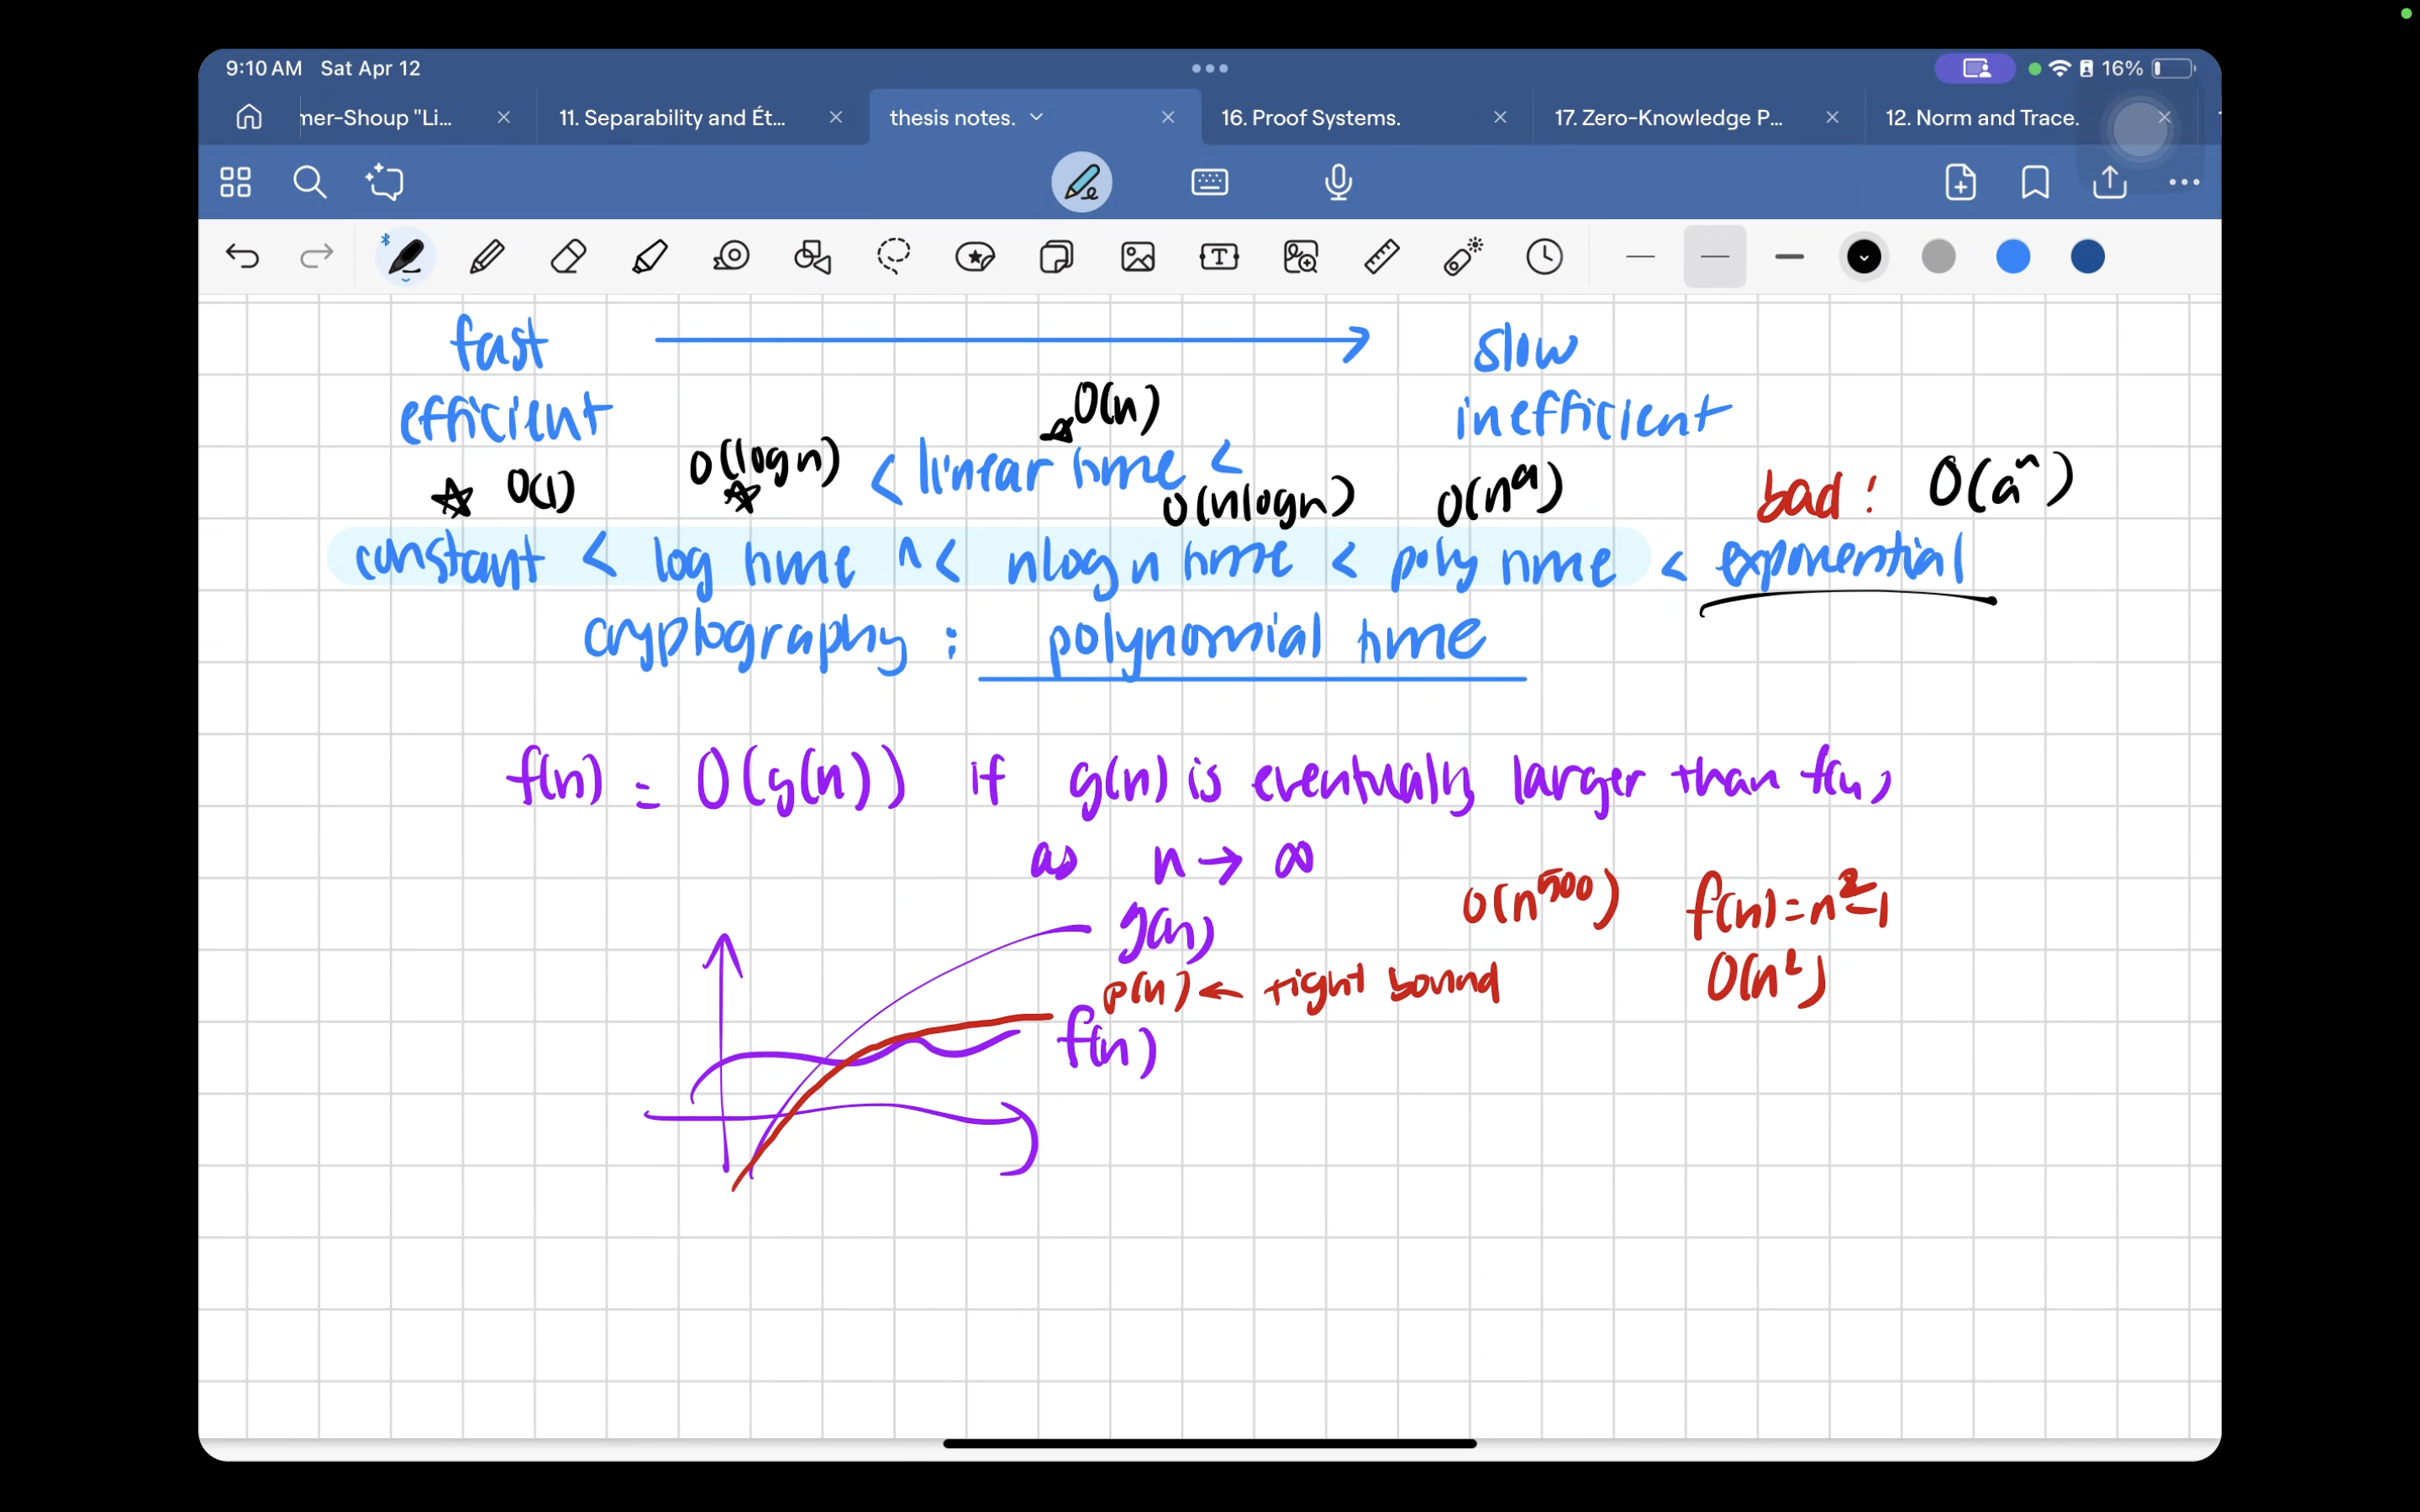 9:10 AM Sat Apr 12
16%
mer-Shoup "Li...
11. Separability and Ét...
thesis notes.
16. Proof Systems.
17. Zero-Knowledge P...
12. Norm and Trace.
fast → slow
efficient inefficient
O(n)
O(log n) < linear time <
O(1) O(nlogn) O(nᵃ) bad! O(aⁿ)
constant < log time ^ < nlogn time < poly time < exponential
cryptography : polynomial time
f(n) = O(g(n)) if g(n) is eventually larger than f(n)
as n → ∞
g(n) O(n⁵⁰⁰) f(n)=n²-1
p(n) ← tight bound O(n²)
f(n)